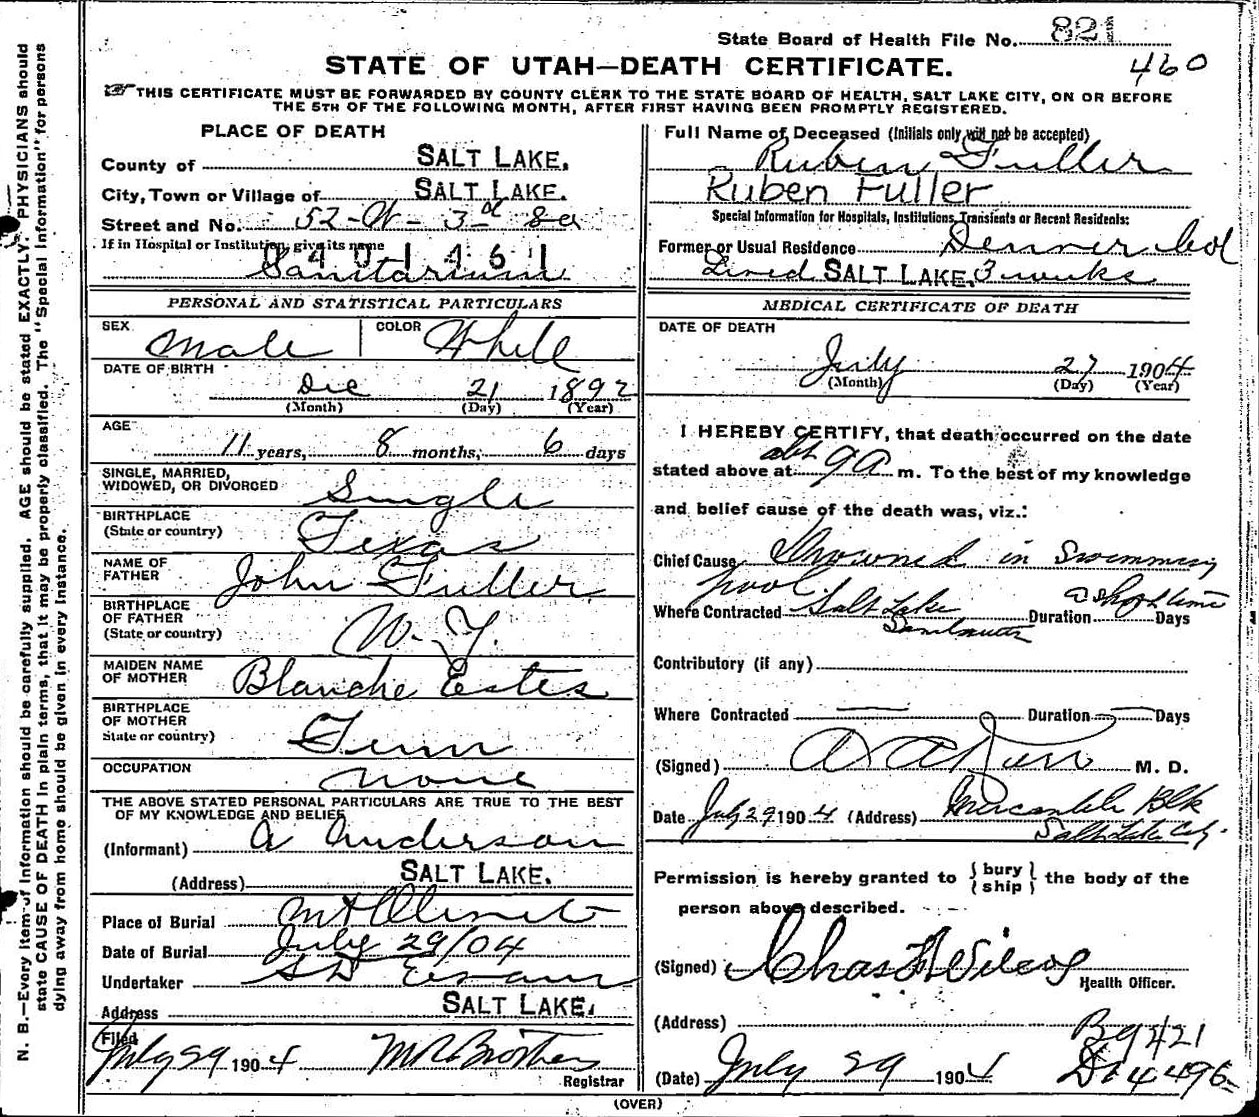 State Board of Health File No. 821
460
STATE OF UTAH—DEATH CERTIFICATE.
THIS CERTIFICATE MUST BE FORWARDED BY COUNTY CLERK TO THE STATE BOARD OF HEALTH, SALT LAKE CITY, ON OR BEFORE
THE 5TH OF THE FOLLOWING MONTH, AFTER FIRST HAVING BEEN PROMPTLY REGISTERED.
PLACE OF DEATH
County of SALT LAKE.
City, Town or Village of SALT LAKE.
Street and No. 52-W-3rd So
If in Hospital or Institution, give its name
0401461
Sanitarium
Full Name of Deceased (Initials only will not be accepted)
Ruben Fuller
Ruben Fuller
Special Information for Hospitals, Institutions, Transients or Recent Residents:
Former or Usual Residence Denver Col
Lived SALT LAKE. 3 weeks
PERSONAL AND STATISTICAL PARTICULARS
SEX Male COLOR White
DATE OF BIRTH
Dec 21 1892
(Month) (Day) (Year)
AGE
11 years, 8 months, 6 days
SINGLE, MARRIED,
WIDOWED, OR DIVORCED Single
BIRTHPLACE
(State or country) Texas
NAME OF
FATHER John Fuller
BIRTHPLACE
OF FATHER
(State or country) N. Y.
MAIDEN NAME
OF MOTHER Blanche Estes
BIRTHPLACE
OF MOTHER
State or country) Tenn
OCCUPATION none
THE ABOVE STATED PERSONAL PARTICULARS ARE TRUE TO THE BEST
OF MY KNOWLEDGE AND BELIEF
(Informant) A Anderson
(Address) SALT LAKE.
Place of Burial Mt Olivet
Date of Burial July 29/04
Undertaker S D Evans
Address SALT LAKE.
Filed
July 29 1904
Registrar
MEDICAL CERTIFICATE OF DEATH
DATE OF DEATH
July 27 1904
(Month) (Day) (Year)
I HEREBY CERTIFY, that death occurred on the date
stated above at abt 9 a m. To the best of my knowledge
and belief cause of the death was, viz.:
Chief Cause Drowned in Swimming
pool
Where Contracted Salt Lake Duration a short time Days
Sanitarium
Contributory (if any)
Where Contracted Duration Days
(Signed) M. D.
Date July 29 1904 (Address) Mercantile Blk
Salt Lake City.
Permission is hereby granted to {bury ship} the body of the
person above described.
(Signed) Chas F Wilcox
Health Officer.
(Address)
(Date) July 29 1904
(OVER)
N. B.—Every item of information should be carefully supplied. AGE should be stated EXACTLY. PHYSICIANS should
state CAUSE OF DEATH in plain terms, that it may be properly classified. The "Special Information" for persons
dying away from home should be given in every instance.